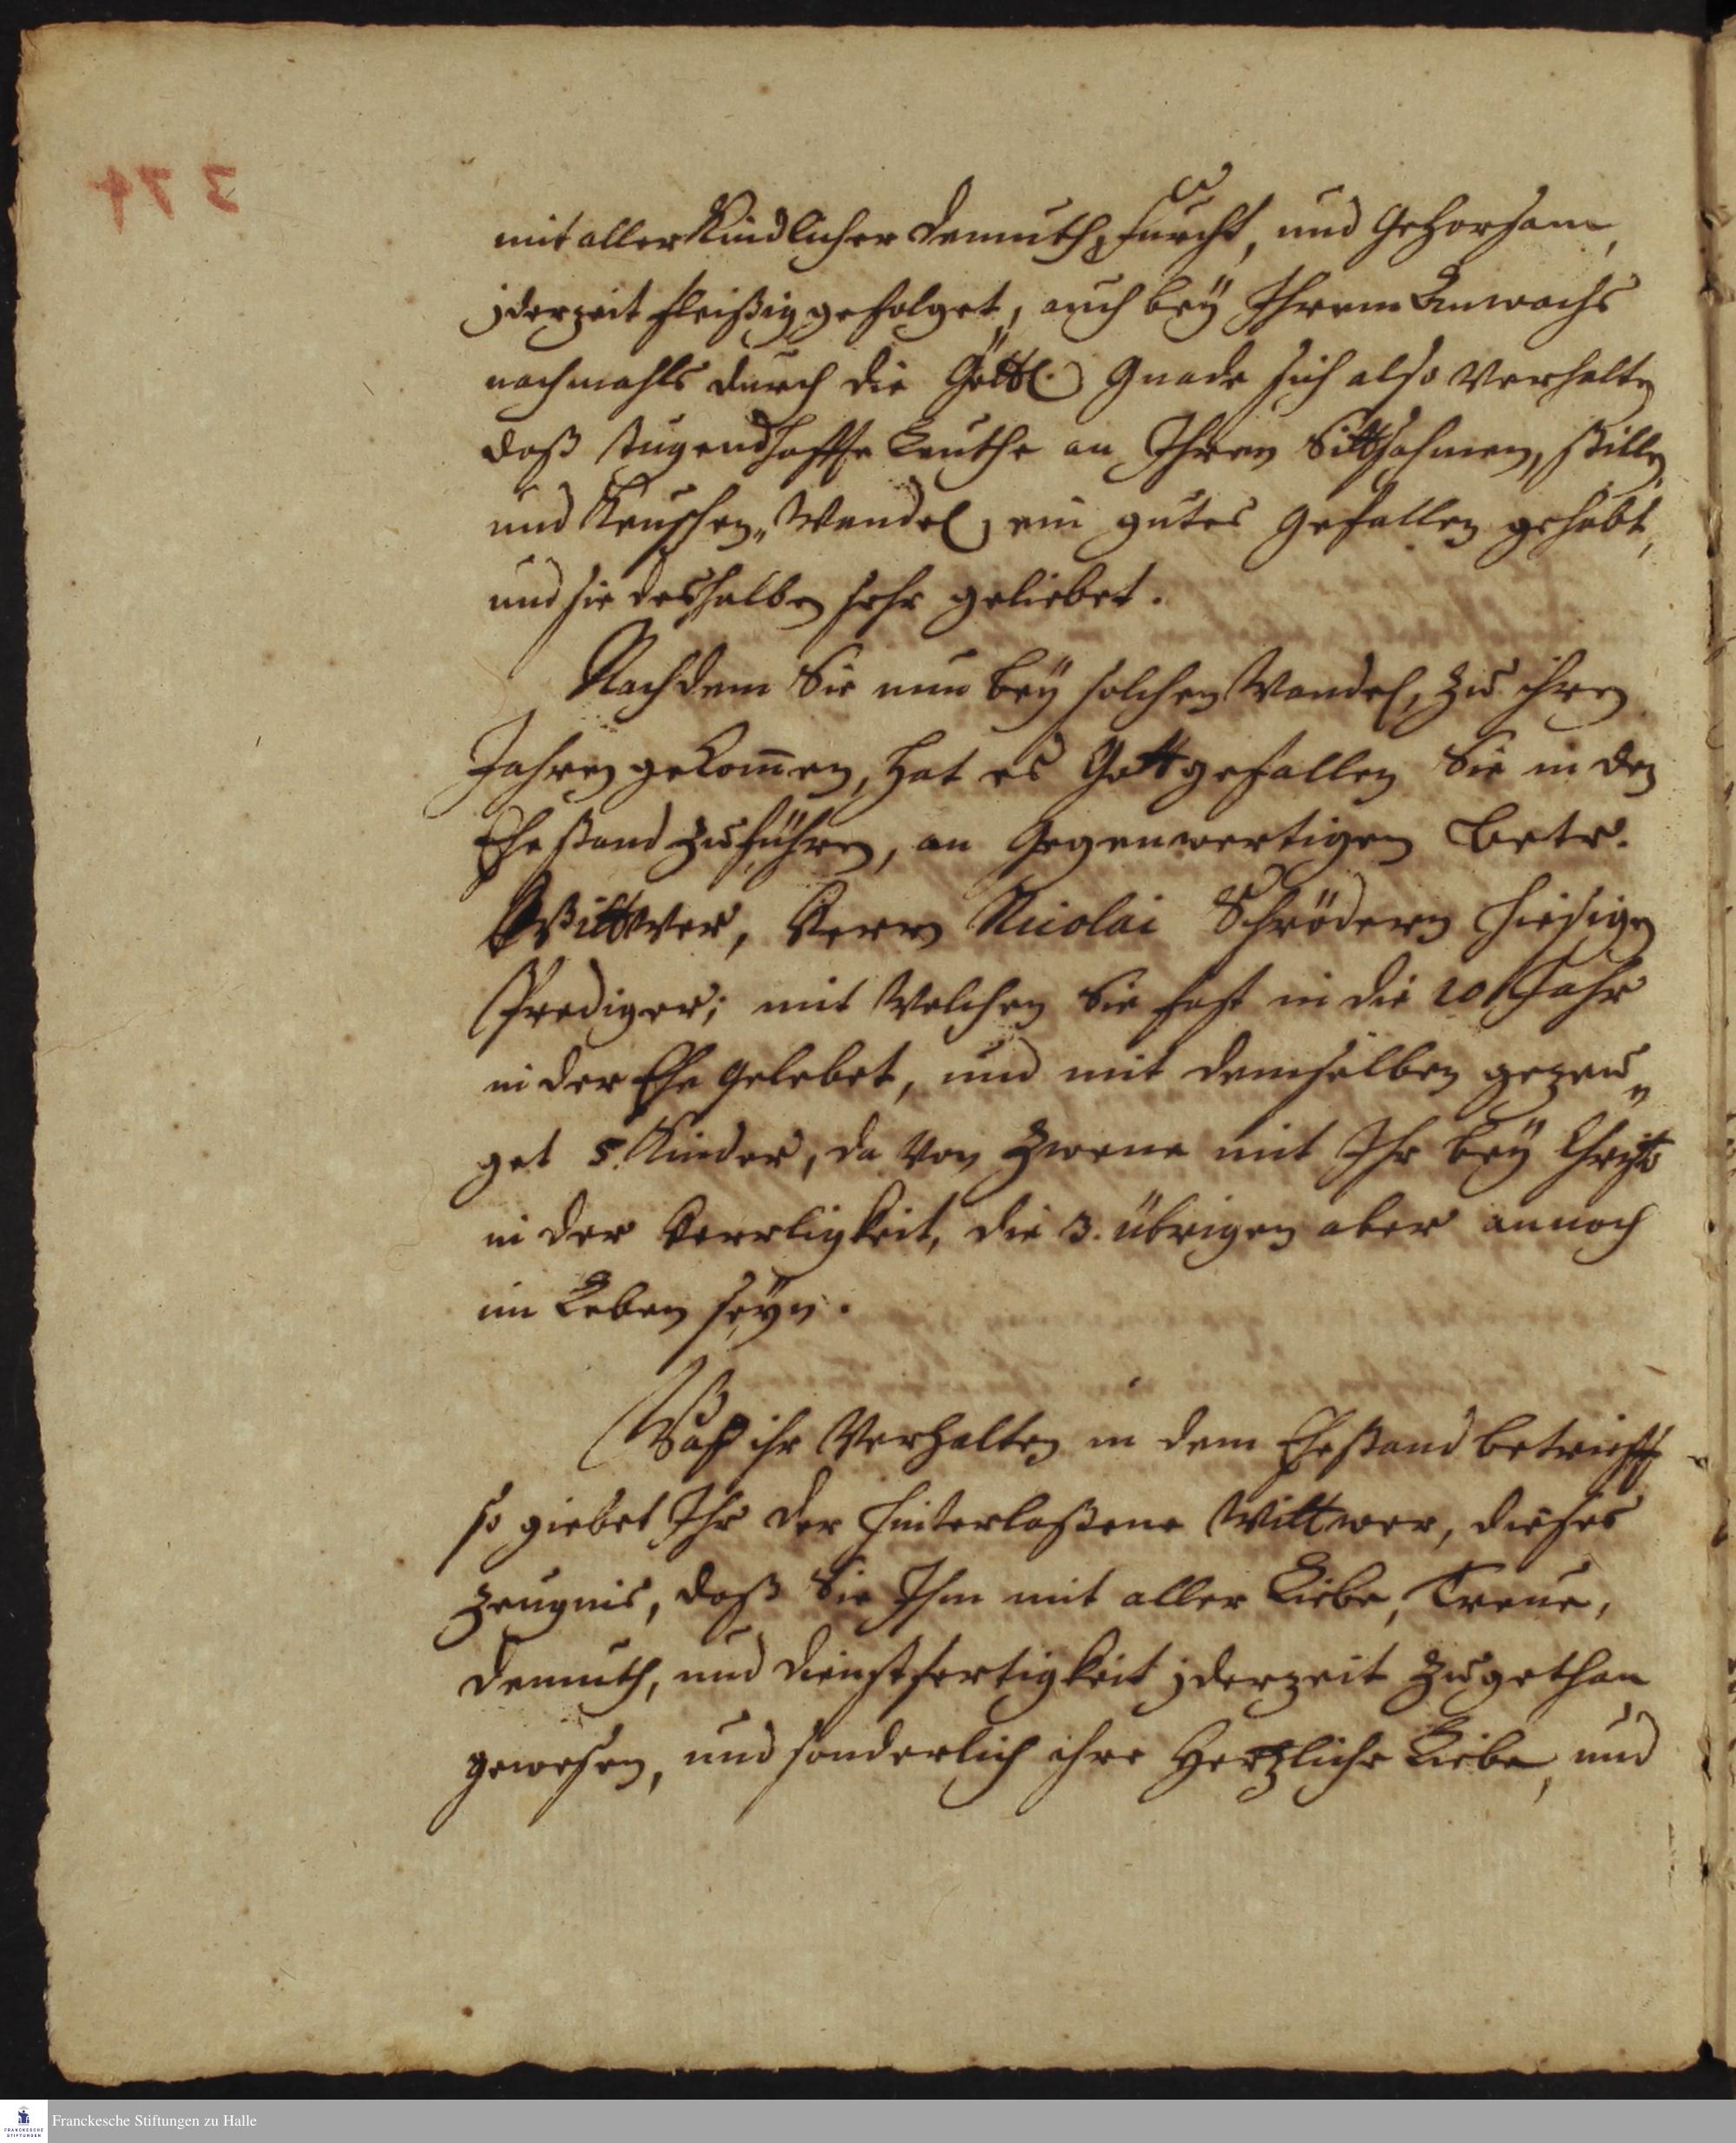 mit aller Kindlicher Demuth, furcht, und Gehorsam,
jderzeit fleißig gefolget, auch beÿ Ihrem Anwachs
nachmahls durch die Göttl. Gnade sich also verhalten
daß tugendhaffte Leuthe an Ihren Sittsahmen, stillen
und Keuschen Wandel, ein gutes gefallen gehabt,
und sie deshalben sehr geliebet.
Nachdem Sie nun beÿ solchen Wandel, zu ihren
Jahren gekom̄en, hat es Gott gefallen Sie in den
Ehestand zuführen, an Gegenwertigen betr.
Wittwer, Herrn Nicolai Schrödern hiesigen
Prediger; mit Welchen Sie fast in die 10 Jahr
in der Ehe gelebet, und mit demselben gezeu„
get 5. Kinder, da von Zweene mit Ihr beÿ Christo
in der Herrligkeit, die 3. übrigen aber annoch
im Leben seÿn.
Waß ihr Verhalten in dem Ehestand betrifft
so giebet Ihr der hinterlaßene Wittwer, dieses
Zeugnis, daß Sie Ihm mit aller Liebe, Treue,
Demuth, und dienstfertigkeit jderzeit zugethan
gewesen, und sonderlich ihre Hertzliche Liebe, und
374
Franckesche Stiftungen zu Halle